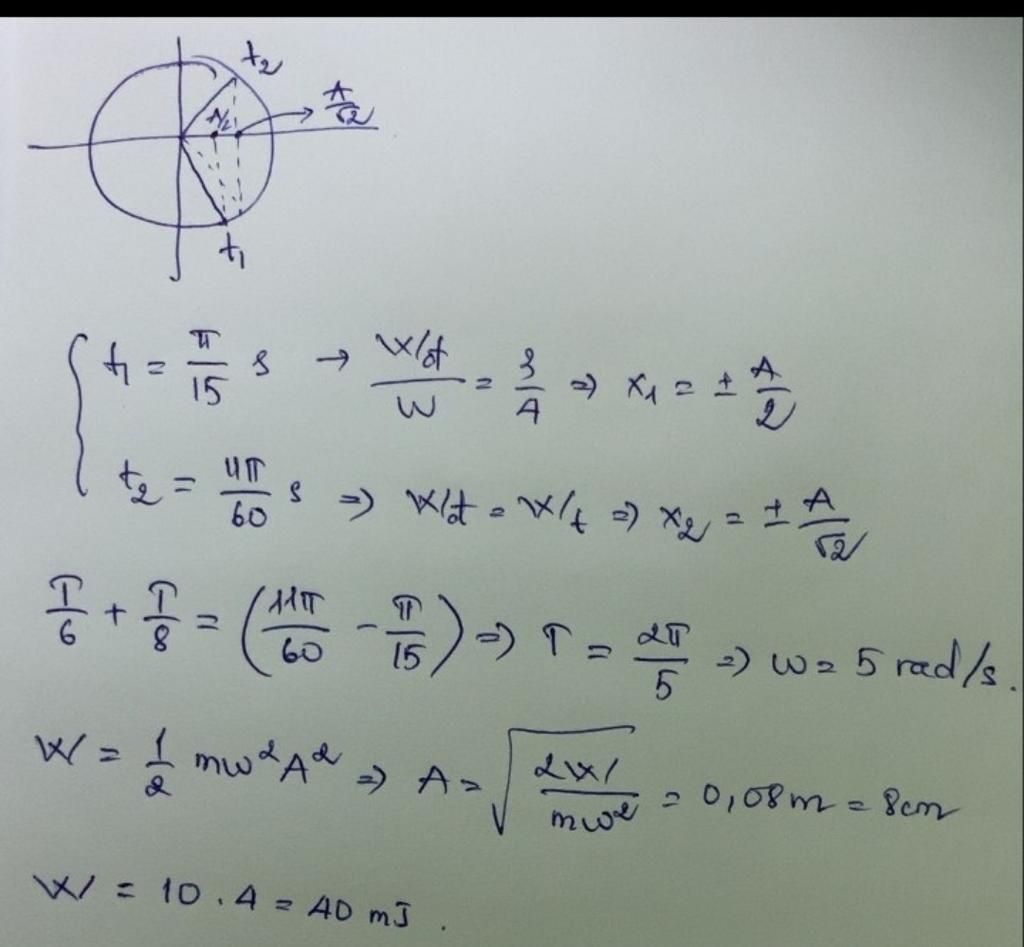 t₂
A/2
A/√2
t₁
t₁ = π/15 s → Wđ/W = 3/4 => x₁ = ± A/2
t₂ = 11π/60 s => Wđ = Wt => x₂ = ± A/√2
T/6 + T/8 = (11π/60 - π/15) => T = 2π/5 => ω = 5 rad/s.
W = 1/2 mω²A² => A = √(2W/mω²) = 0,08m = 8cm
W = 10 . 4 = 40 mJ .